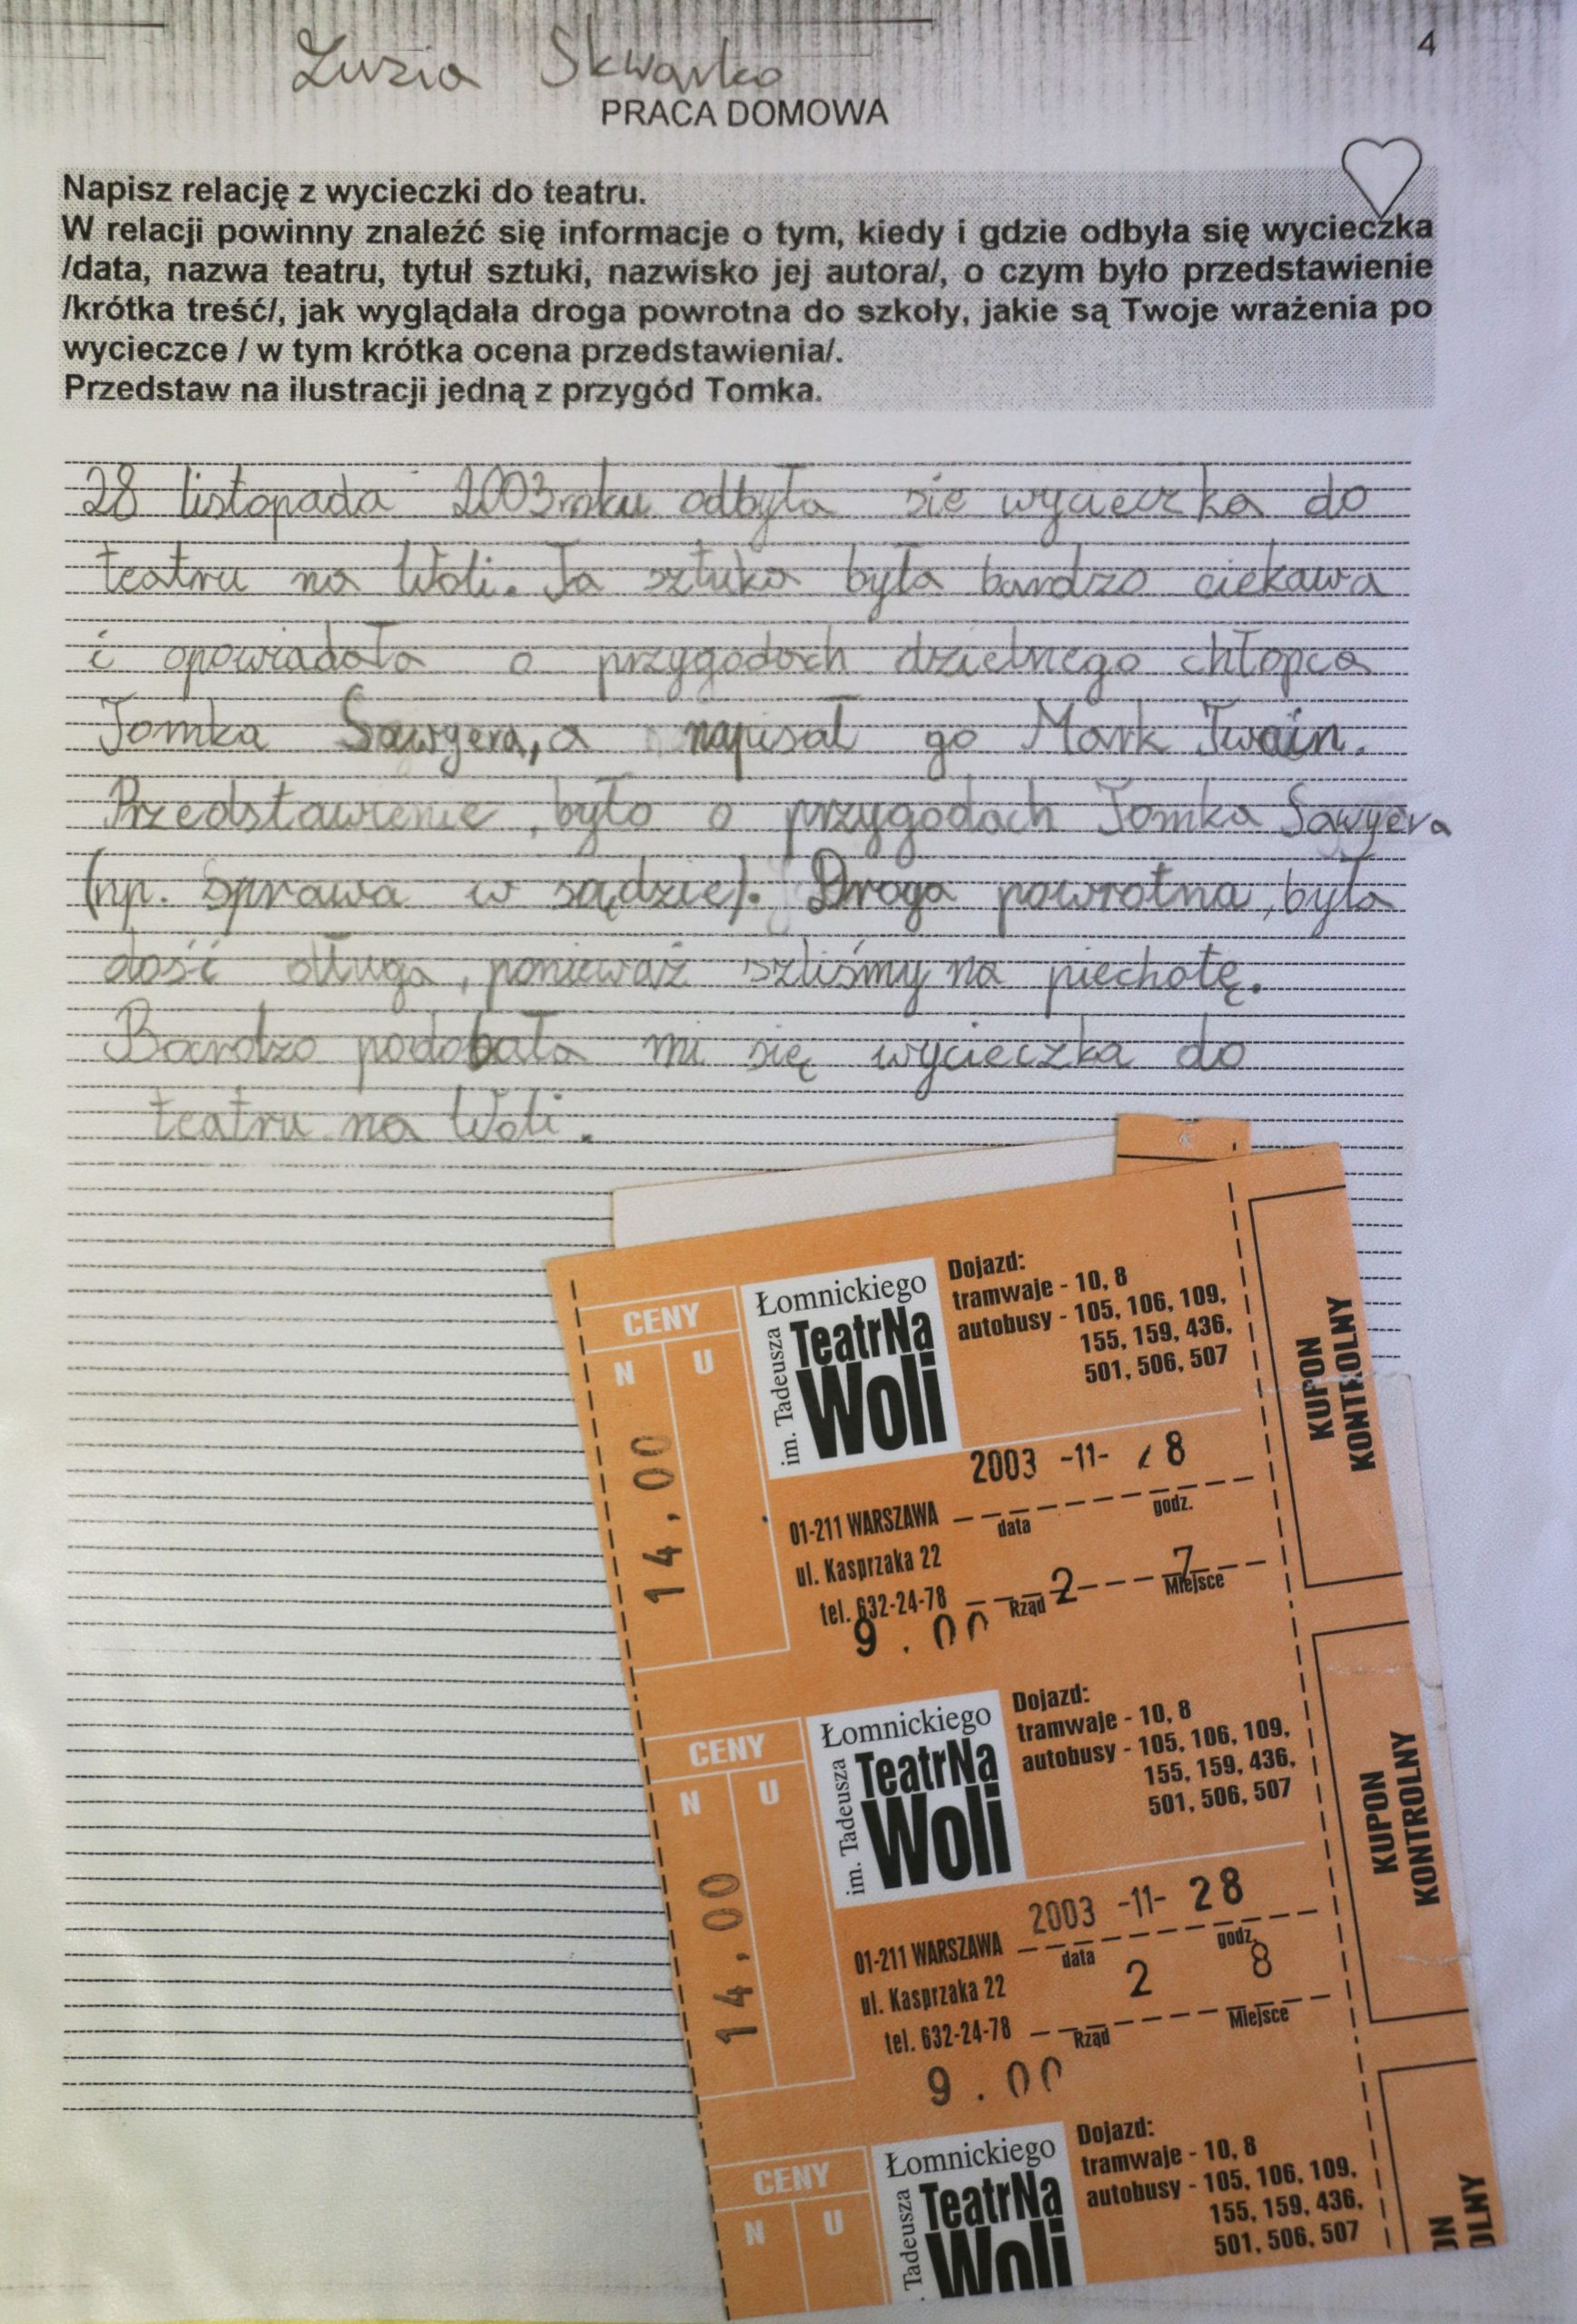 Zuzia Skwarko
4
PRACA DOMOWA
Napisz relację z wycieczki do teatru.
W relacji powinny znaleźć się informacje o tym, kiedy i gdzie odbyła się wycieczka
/data, nazwa teatru, tytuł sztuki, nazwisko jej autora/, o czym było przedstawienie
/krótka treść/, jak wyglądała droga powrotna do szkoły, jakie są Twoje wrażenia po
wycieczce / w tym krótka ocena przedstawienia/.
Przedstaw na ilustracji jedną z przygód Tomka.
28 listopada 2003 roku odbyła sie wycieczka do
teatru na Woli. Ta sztuka była bardzo ciekawa
i opowiadała o przygodach dzielnego chłopca
Tomka Sawyera, a napisał go Mark Twain.
Przedstawienie, było o przygodach Tomka Sawyera
(np. sprawa w sądzie). Droga powrotna, była
dość długa, ponieważ szliśmy na piechotę.
Bardzo podobała mi się wycieczka do
teatru na Woli.
CENY
N U
14,00
im. Tadeusza
Łomnickiego
TeatrNa
Woli
Dojazd:
tramwaje - 10, 8
autobusy - 105, 106, 109,
155, 159, 436,
501, 506, 507
2003 -11- 28
01-211 WARSZAWA
data godz.
ul. Kasprzaka 22
2 7
tel. 632-24-78
Rząd Miejsce
9.00
KUPON
KONTROLNY
CENY
N U
14,00
im. Tadeusza
Łomnickiego
TeatrNa
Woli
Dojazd:
tramwaje - 10, 8
autobusy - 105, 106, 109,
155, 159, 436,
501, 506, 507
2003 -11- 28
01-211 WARSZAWA
data godz.
ul. Kasprzaka 22
2 8
tel. 632-24-78
Rząd Miejsce
9.00
KUPON
KONTROLNY
CENY
N U
Tadeusza
Łomnickiego
TeatrNa
Woli
Dojazd:
tramwaje - 10, 8
autobusy - 105, 106, 109,
155, 159, 436,
501, 506, 507
ON
OLNY